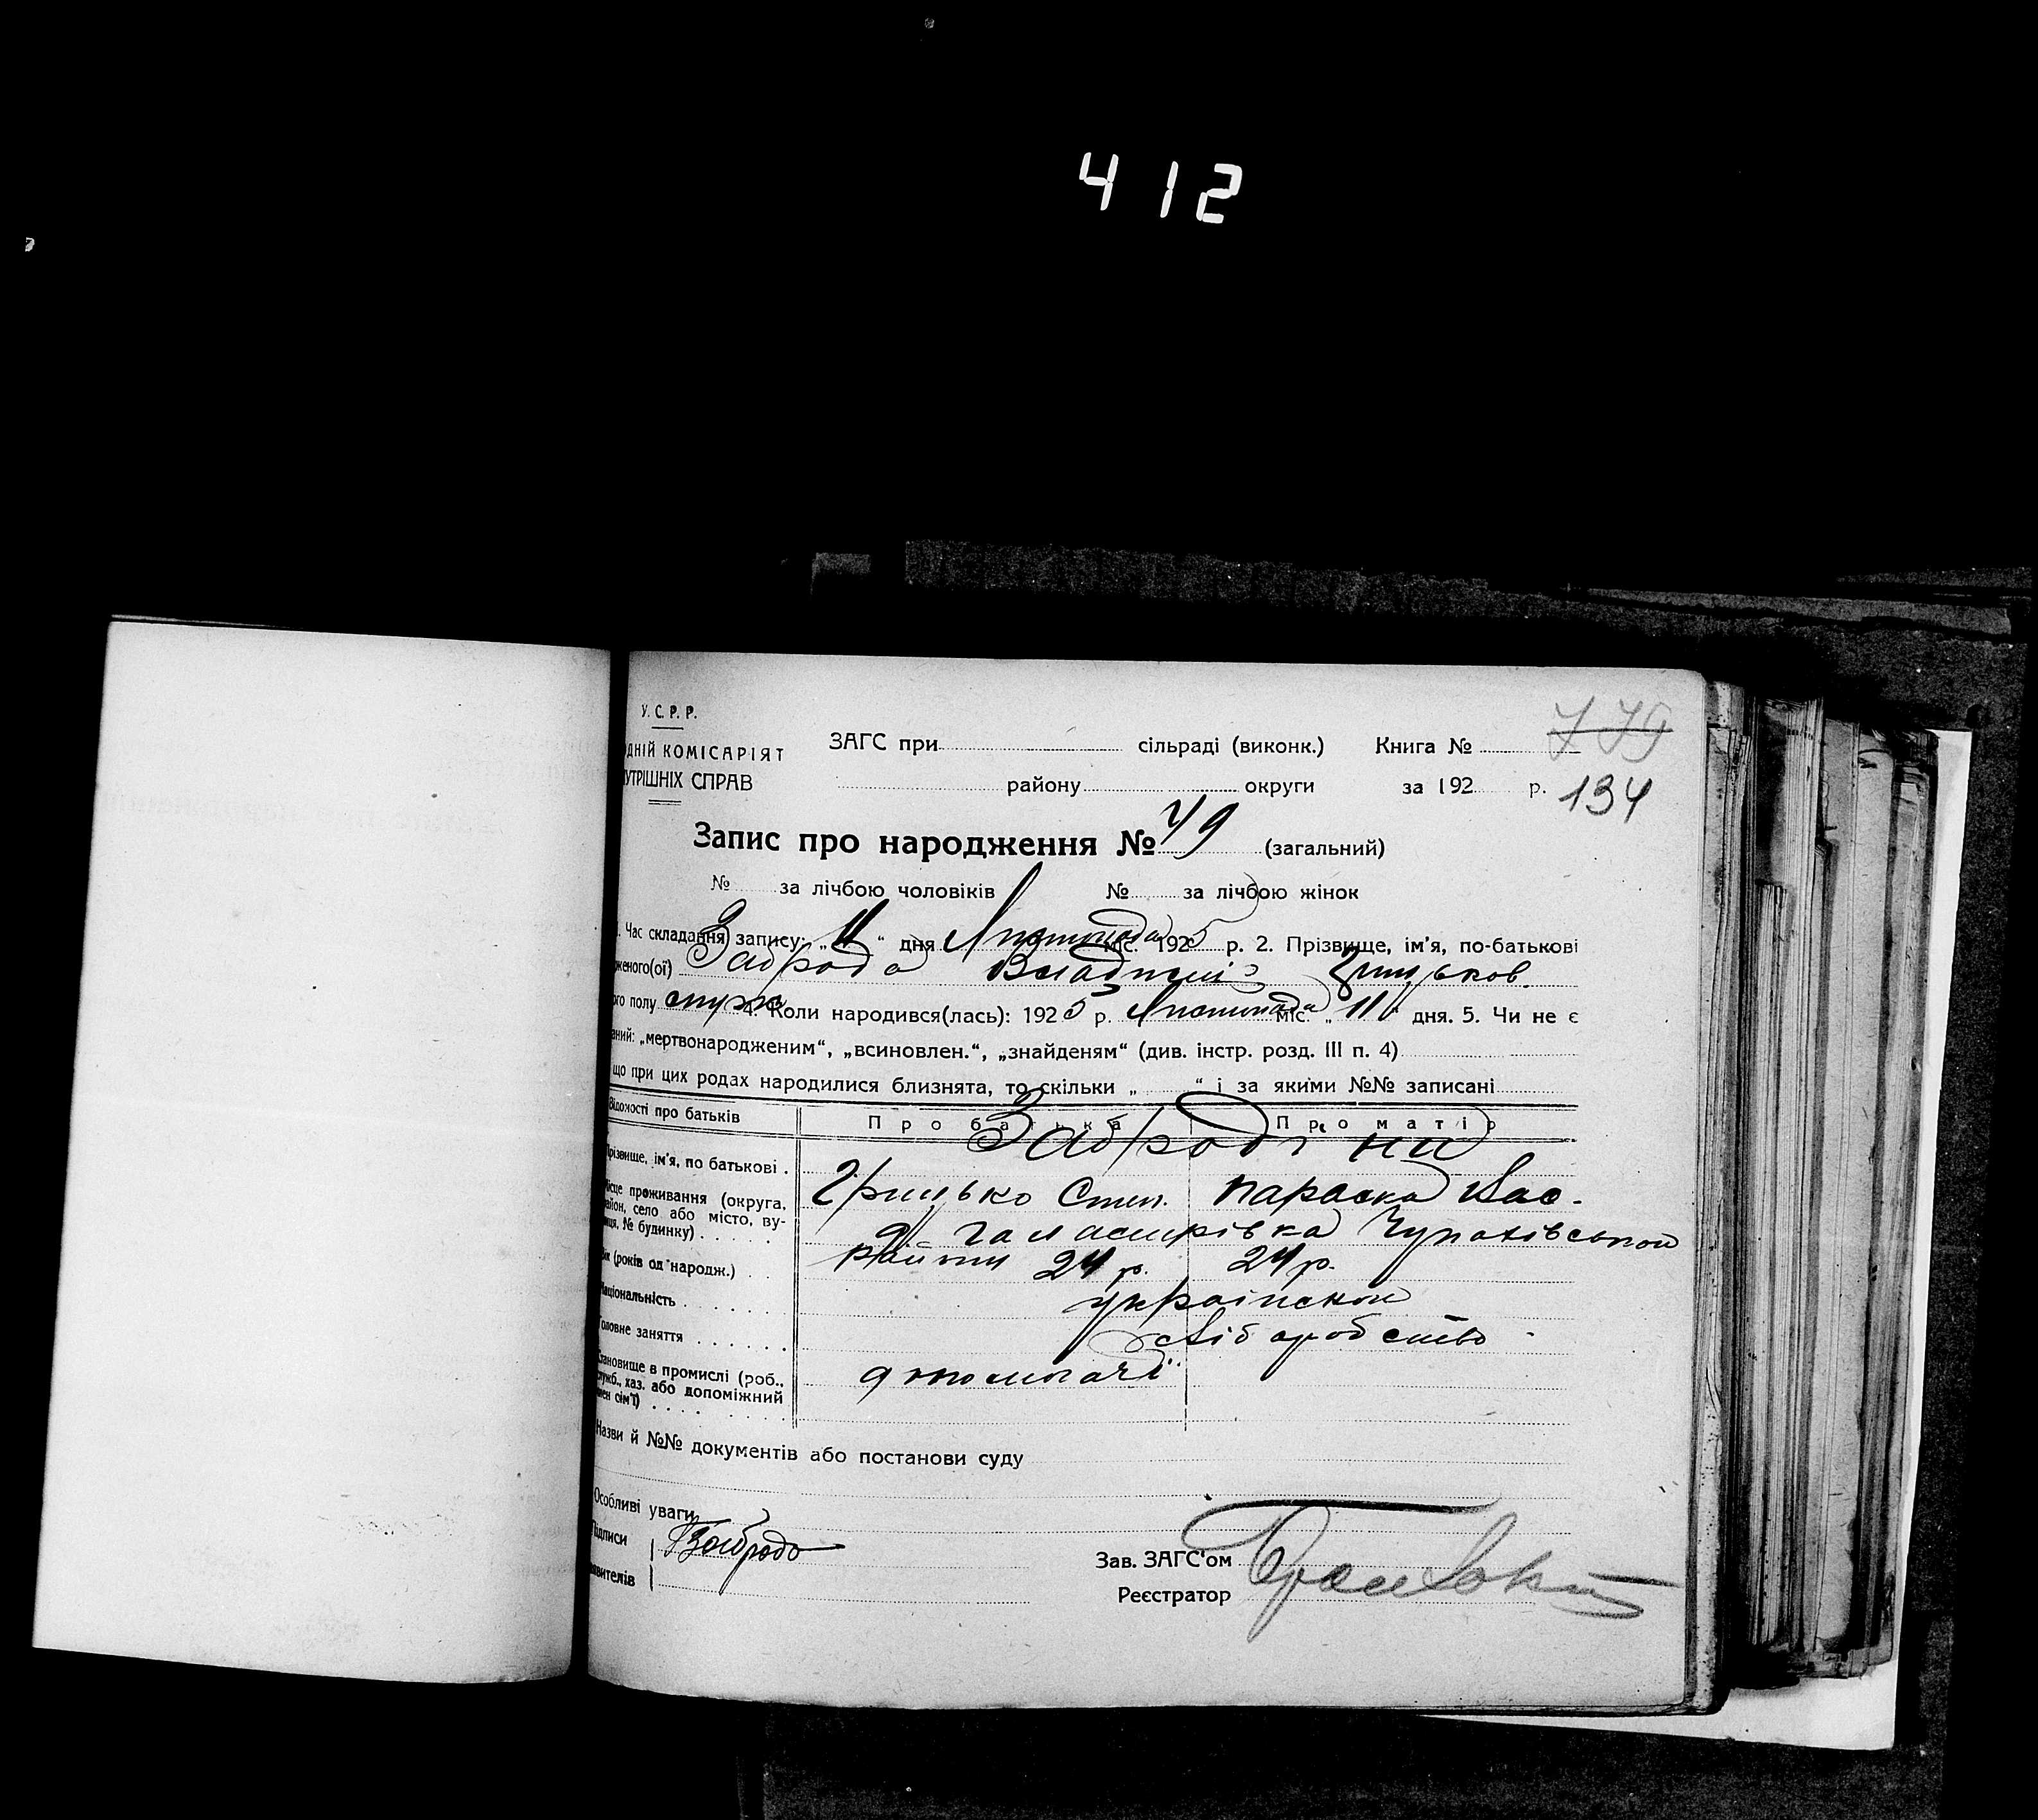 412
У. С. Р. Р.
ОДНІЙ КОМІСАРІЯТ
УТРІШНІХ СПРАВ
ЗАГС при сільраді (виконк.) Книга №
779
району округи за 192 р. 134
Запис про народження № 79 (загальний)
№ за лічбою чоловіків № за лічбою жінок
1. Час складання запису: „11“ дня Листопада міс. 1925 р. 2. Прізвище, ім'я, по-батькові
женого(ої) Заброда Грицьков.
ого полу муж 4. Коли народився(лась): 1925 р. Листопада міс. „11“ дня. 5. Чи не є
аний: „мертвонародженим“, „всиновлен.“, „знайденям“ (див. інстр. розд. III п. 4)
що при цих родах народилися близнята, то скільки „ “ і за якими №№ записані
Відомості про батьків Про батька Про матір
Прізвище, ім'я, по батькові . Забродіни
Грицько Степ. Параска Вас.
Місце проживання (округа, район, село або місто, вулиця, № будинку) . . . . . Чупахівської
Вік (років од народж.) . . 24 р. 24 р.
Національність . . . . . . . українськ
Головне заняття . . . . . . хліборобство
Становище в промислі (роб.,
служб., хаз. або допоміжний
член сім'ї) . . . . . . . .
Назви й №№ документів або постанови суду
Особливі уваги
Підписи Заброда
явителів
Зав. ЗАГС'ом
Реєстратор